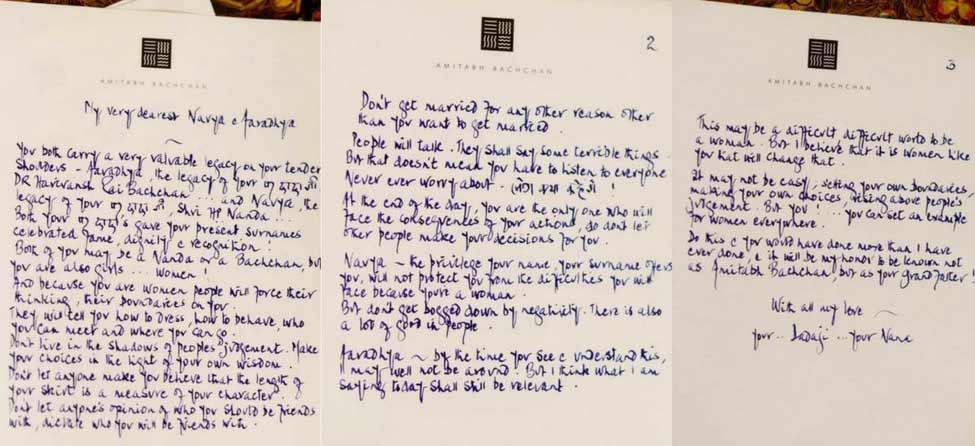 AMITABH BACHCHAN
My very dearest Navya & Aaradhya
You both carry a very valuable legacy on your tender
shoulders - Aaradhya, the legacy of your परदादा जी
DR Harivansh Rai Bachchan ... and Navya, the
legacy of your परदादा जी, Shri HP Nanda ...
Both your परदादा's gave your present surnames
celebrated fame, dignity & recognition !
Both of you may be a Nanda or a Bachchan, but
you are also girls ... women !
And because you are women people will force their
thinking, their boundaries on you.
They will tell you how to dress, how to behave, who
you can meet and where you can go.
Don't live in the shadows of people's judgement. Make
your choices in the light of your own wisdom.
Don't let anyone make you believe that the length of
your skirt is a measure of your character.
Don't let anyone's opinion of who you should be friends
with, dictate who you will be friends with.
2
AMITABH BACHCHAN
Don't get married for any other reason other
than you want to get married.
People will talk. They shall say some terrible things.
But that doesn't mean you have to listen to everyone
Never ever worry about. (लोग क्या कहेंगे !
At the end of the day, you are the only one who will
face the consequences of your actions, so don't let
other people make your decisions for you.
Navya ~ the privilege your name, your surname offers
you, will not protect you from the difficulties you will
face because you're a woman.
But don't get bogged down by negativity. There is also
a lot of good in people.
Aaradhya ~ by the time you see & understand this,
I may well not be around. But I think what I am
saying today shall still be relevant.
3
AMITABH BACHCHAN
This may be a difficult difficult world to be
a woman. But I believe that it is women like
you that will change that.
It may not be easy, setting your own boundaries,
making your own choices, rising above people's
judgement. But you ! ... you can set an example
for women everywhere.
Do this & you would have done more than I have
ever done, & it will be my honor to be known not
as Amitabh Bachchan, but as your grandfather !
With all my love ~
your.. Dadaji ... your Nana